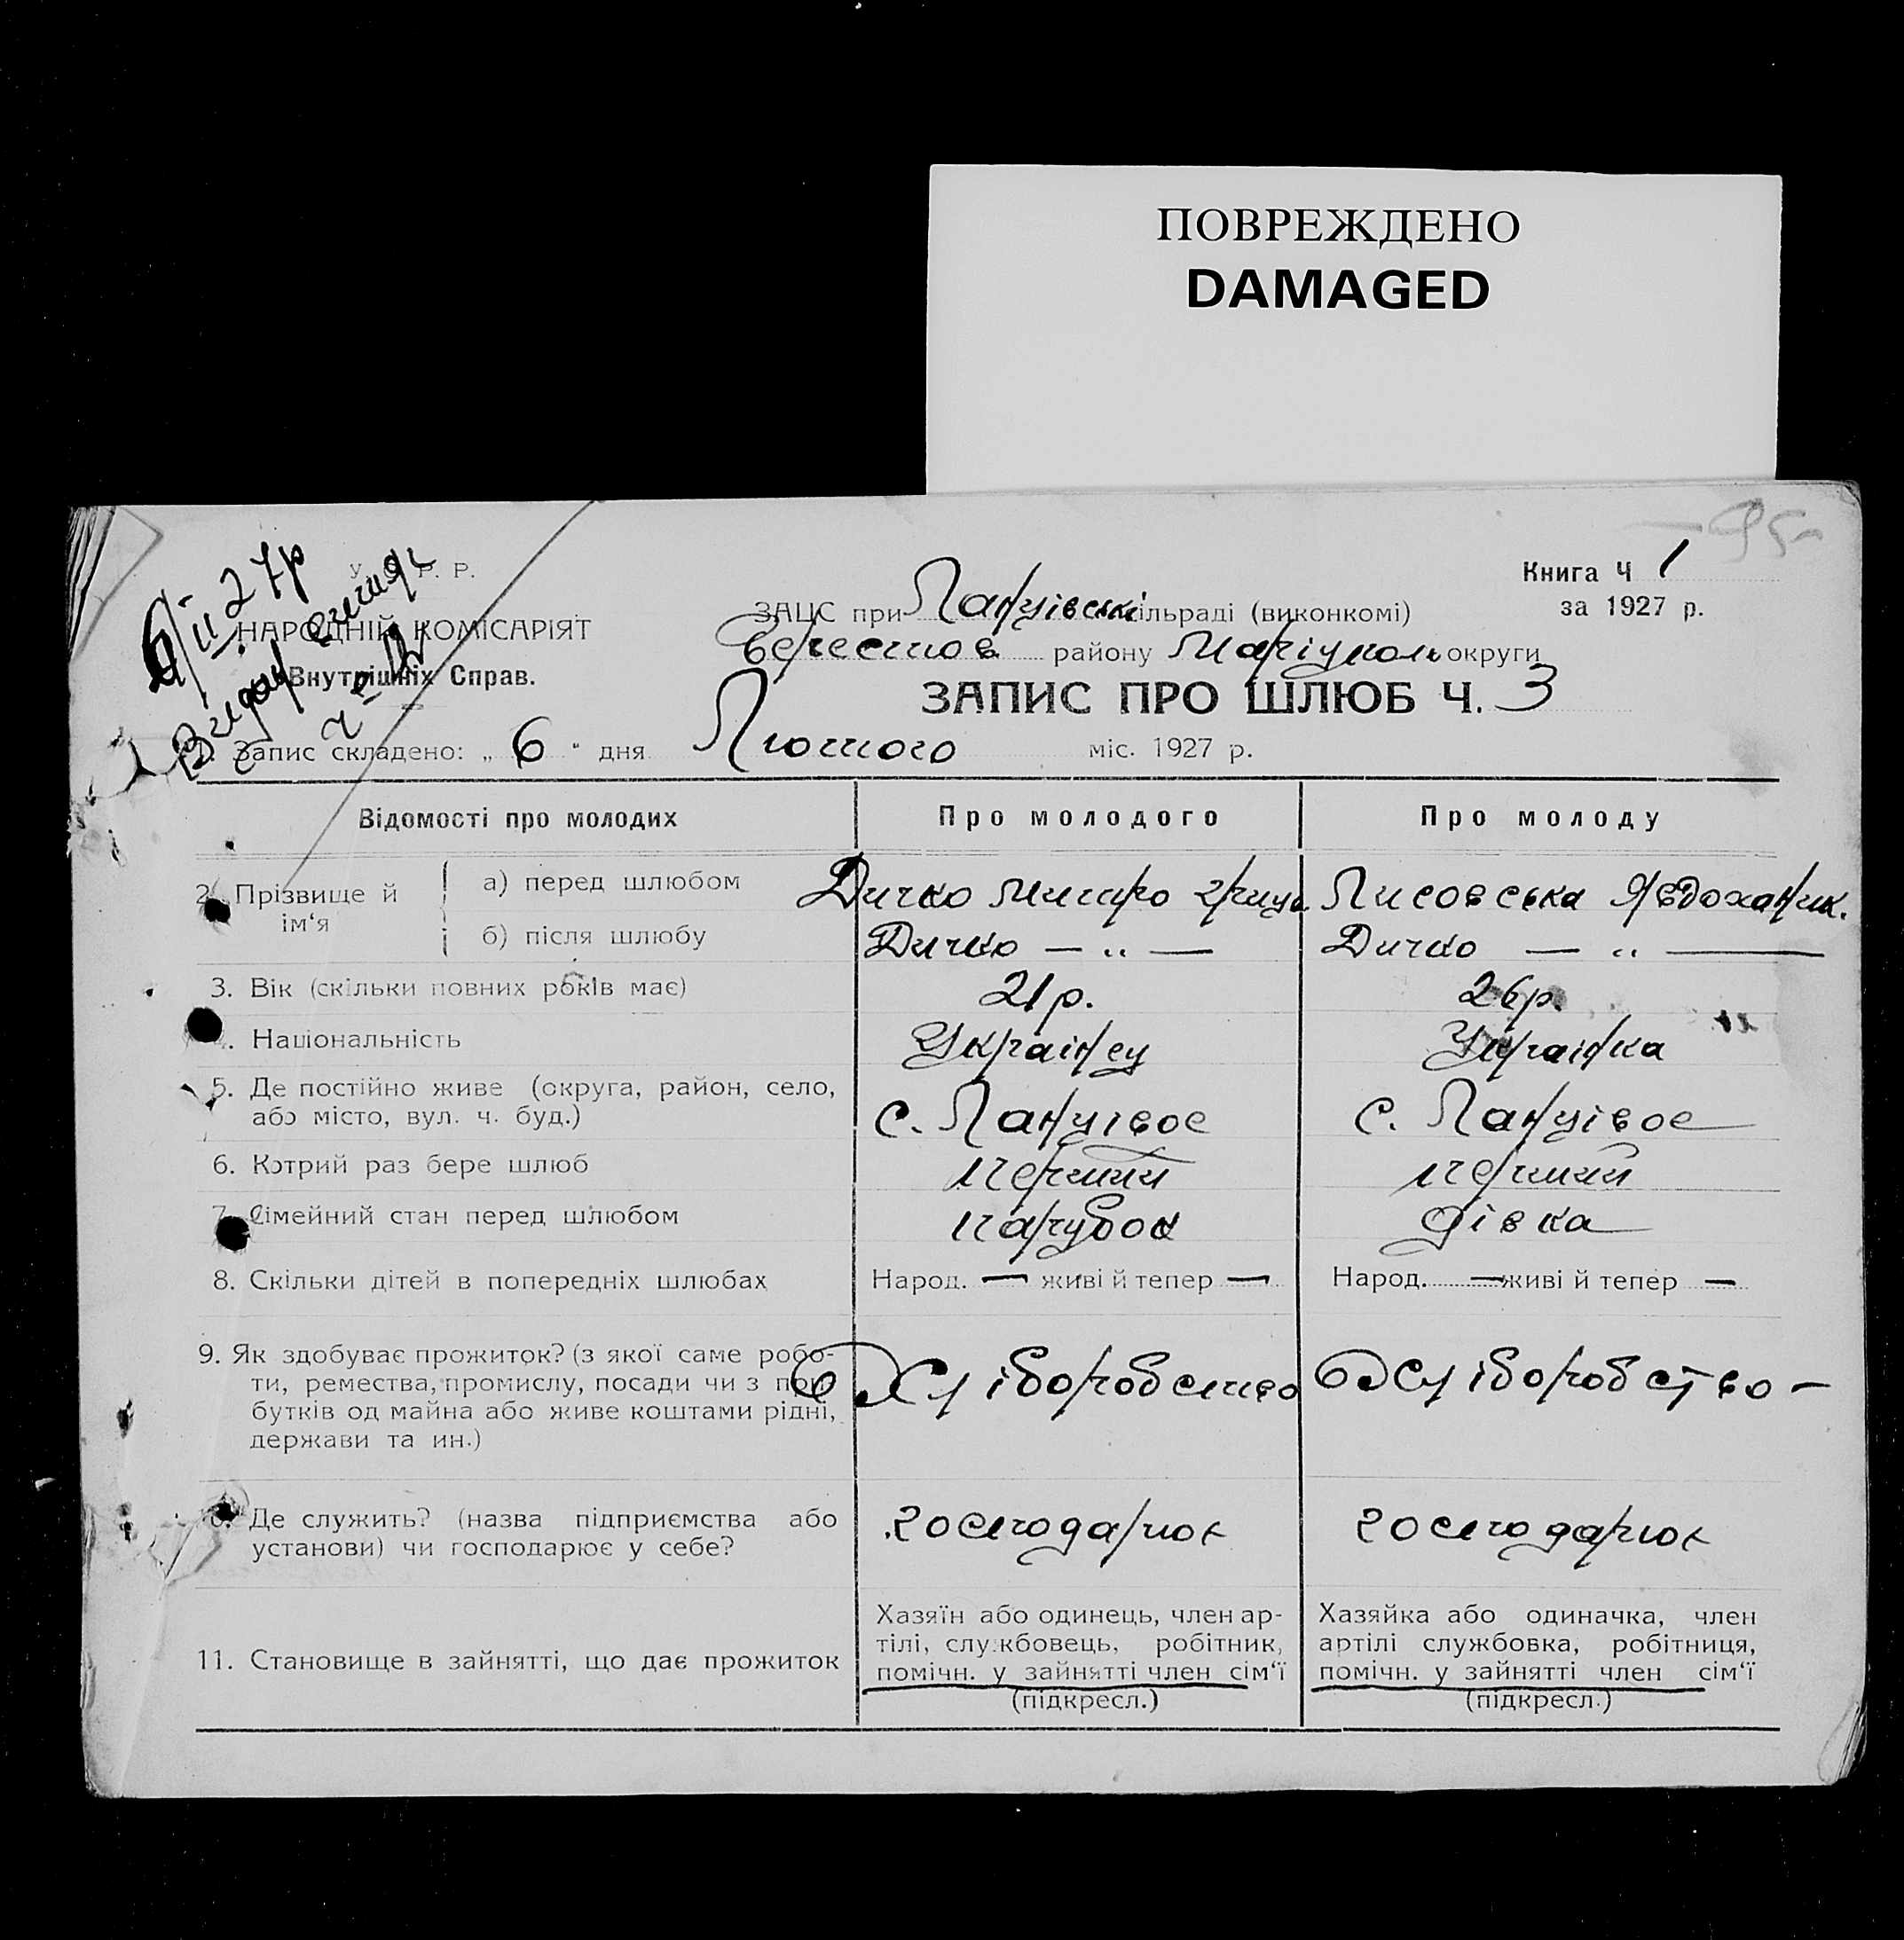 ПОВРЕЖДЕНО
DAMAGED
У. С. Р. Р.
НАРОДНІЙ КОМІСАРІЯТ
Внутрішніх Справ.
6/II 27р
ЗАЦС при Ланцівські сільраді (виконкомі)
Берестов района району Маріуполь округи
Книга Ч 1
за 1927 р.
ЗАПИС ПРО ШЛЮБ Ч. 3
Запис складено: „ 6 " дня Лютого міс. 1927 р.
Відомості про молодих Про молодого Про молоду
2. Прізвище й ім‘я а) перед шлюбом Дичко Митро Лисовська
б) після шлюбу Дичко — „ — Дичко — „ —
3. Вік (скільки повних років має) 21р. 26р.
4. Національність Українец Українка
5. Де постійно живе (округа, район, село, або місто, вул. ч. буд.) с. Ланцівое с. Ланцівое
6. Котрий раз бере шлюб перший перший
7. Сімейний стан перед шлюбом парубок дівка
8. Скільки дітей в попередніх шлюбах Народ. — живі й тепер — Народ. — живі й тепер —
9. Як здобуває прожиток? (з якої саме робо-
ти, ремества, промислу, посади чи з при-
бутків од майна або живе коштами рідні,
держави та ин.) Хліборобство Хліборобство —
10. Де служить? (назва підприємства або
установи) чи господарює у себе? господарює господарює
11. Становище в зайнятті, що дає прожиток
Хазяїн або одинець, член ар-
тілі, службовець, робітник,
помічн. у зайнятті член сім‘ї
(підкресл.)
Хазяйка або одиначка, член
артілі службовка, робітниця,
помічн. у зайнятті член сім‘ї
(підкресл.)